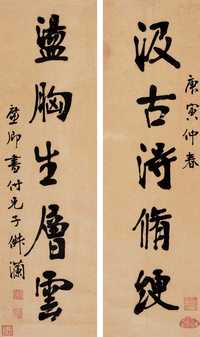 庚寅仲春
汲古得脩绠
盪胸生層雲
虛卿書付兄子㒇瀾